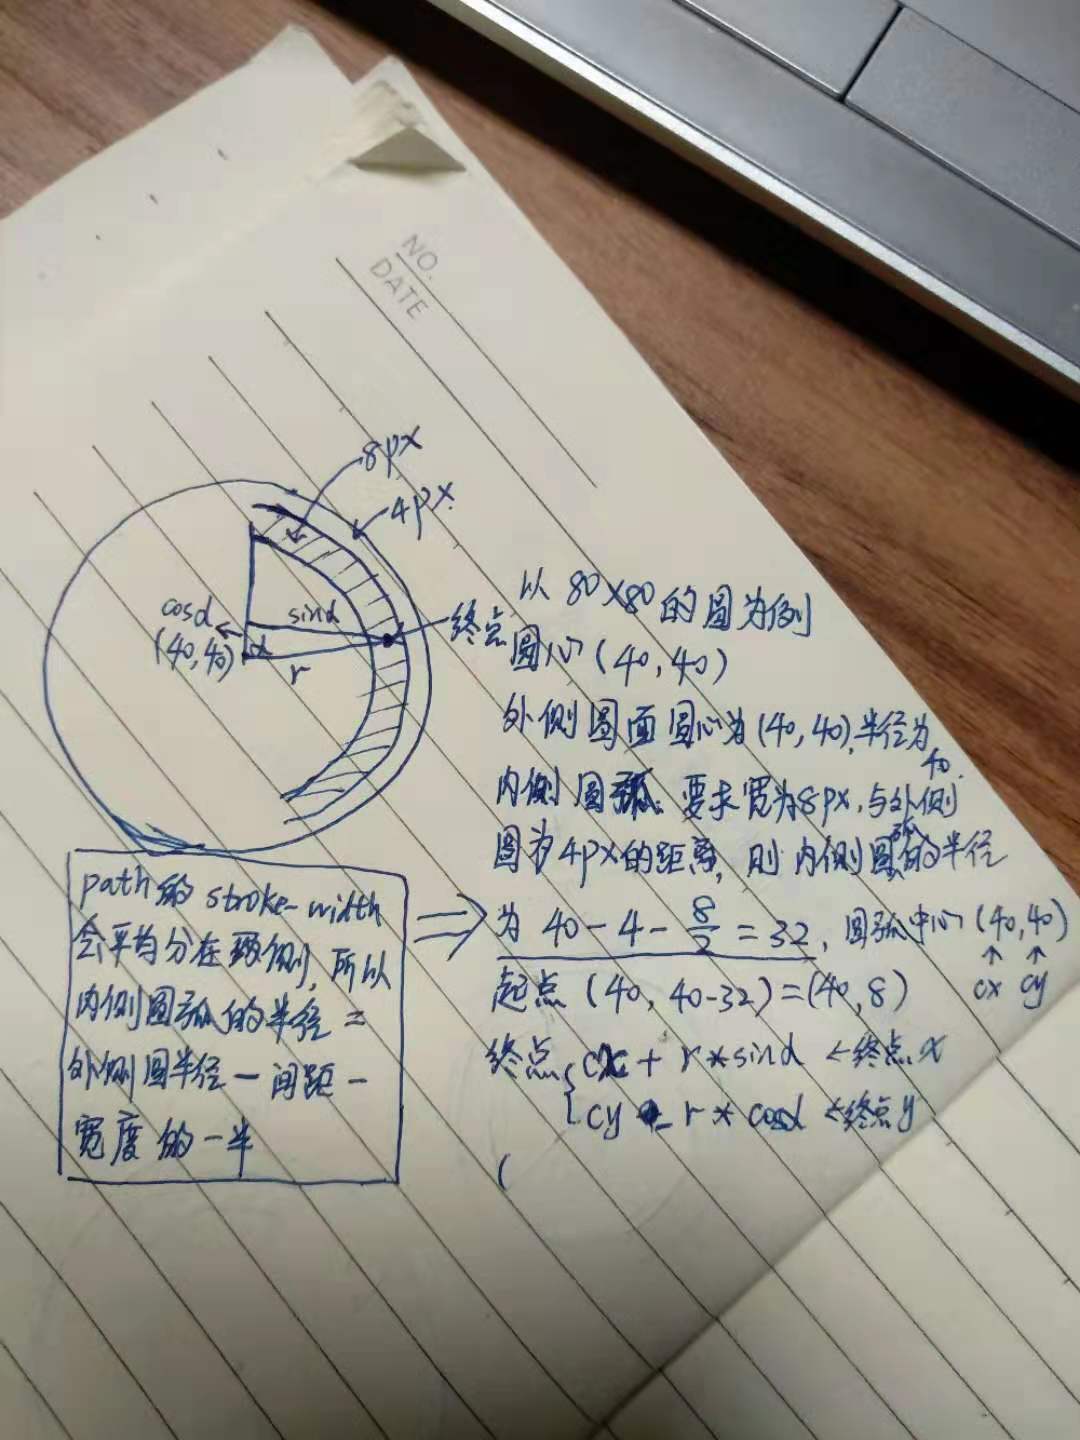 NO.
DATE
8px
4px
cosα
sinα
(40,40)
α
r
终点
以 80×80 的圆为例
圆心 (40,40)
外侧圆面圆心为(40,40),半径为
40.
内侧圆弧:要求宽为8px,与外侧
圆为4px的距离,则内侧圆弧的半径
为 40-4-8/2=32,圆弧中心(40,40)
↑ ↑
cx cy
起点 (40,40-32)=(40,8)
终点{cx + r*sinα ←终点x
cy - r* cosα ←终点y
(
path的 stroke-width
会平均分在两侧,所以
内侧圆弧的半径 =
外侧圆半径-间距-
宽度的一半
⇒